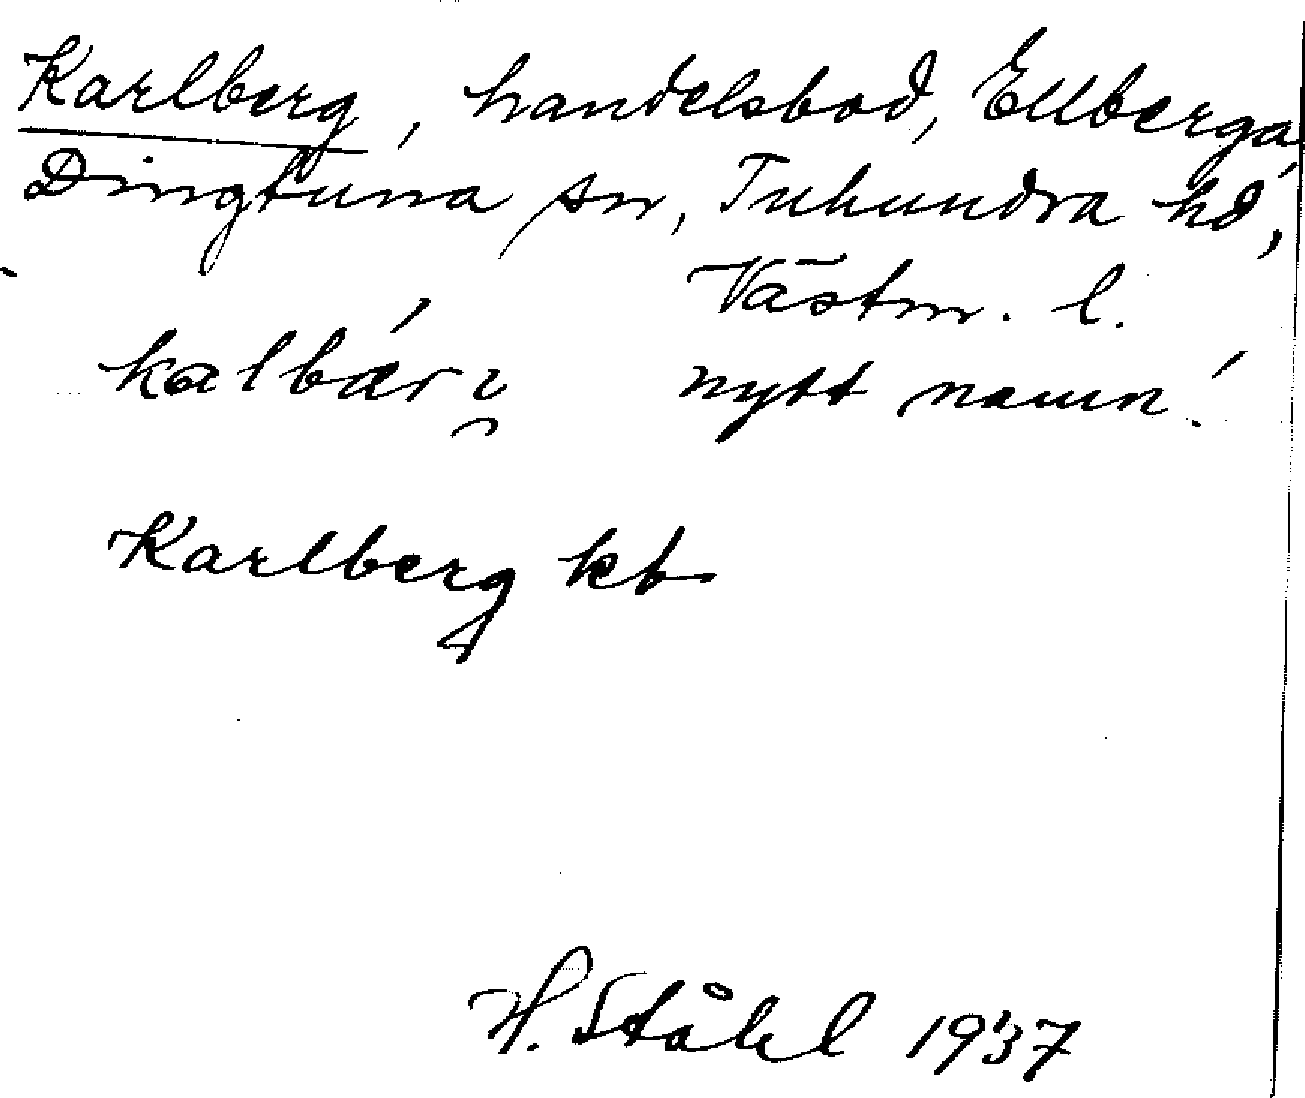 Karlberg, handelsbod, Ellberga,
Dingtuna sn, Tuhundra hd,
Västm. l.
kalbǽri̯ nytt namn!
Karlberg kb
H. Ståhl 1937